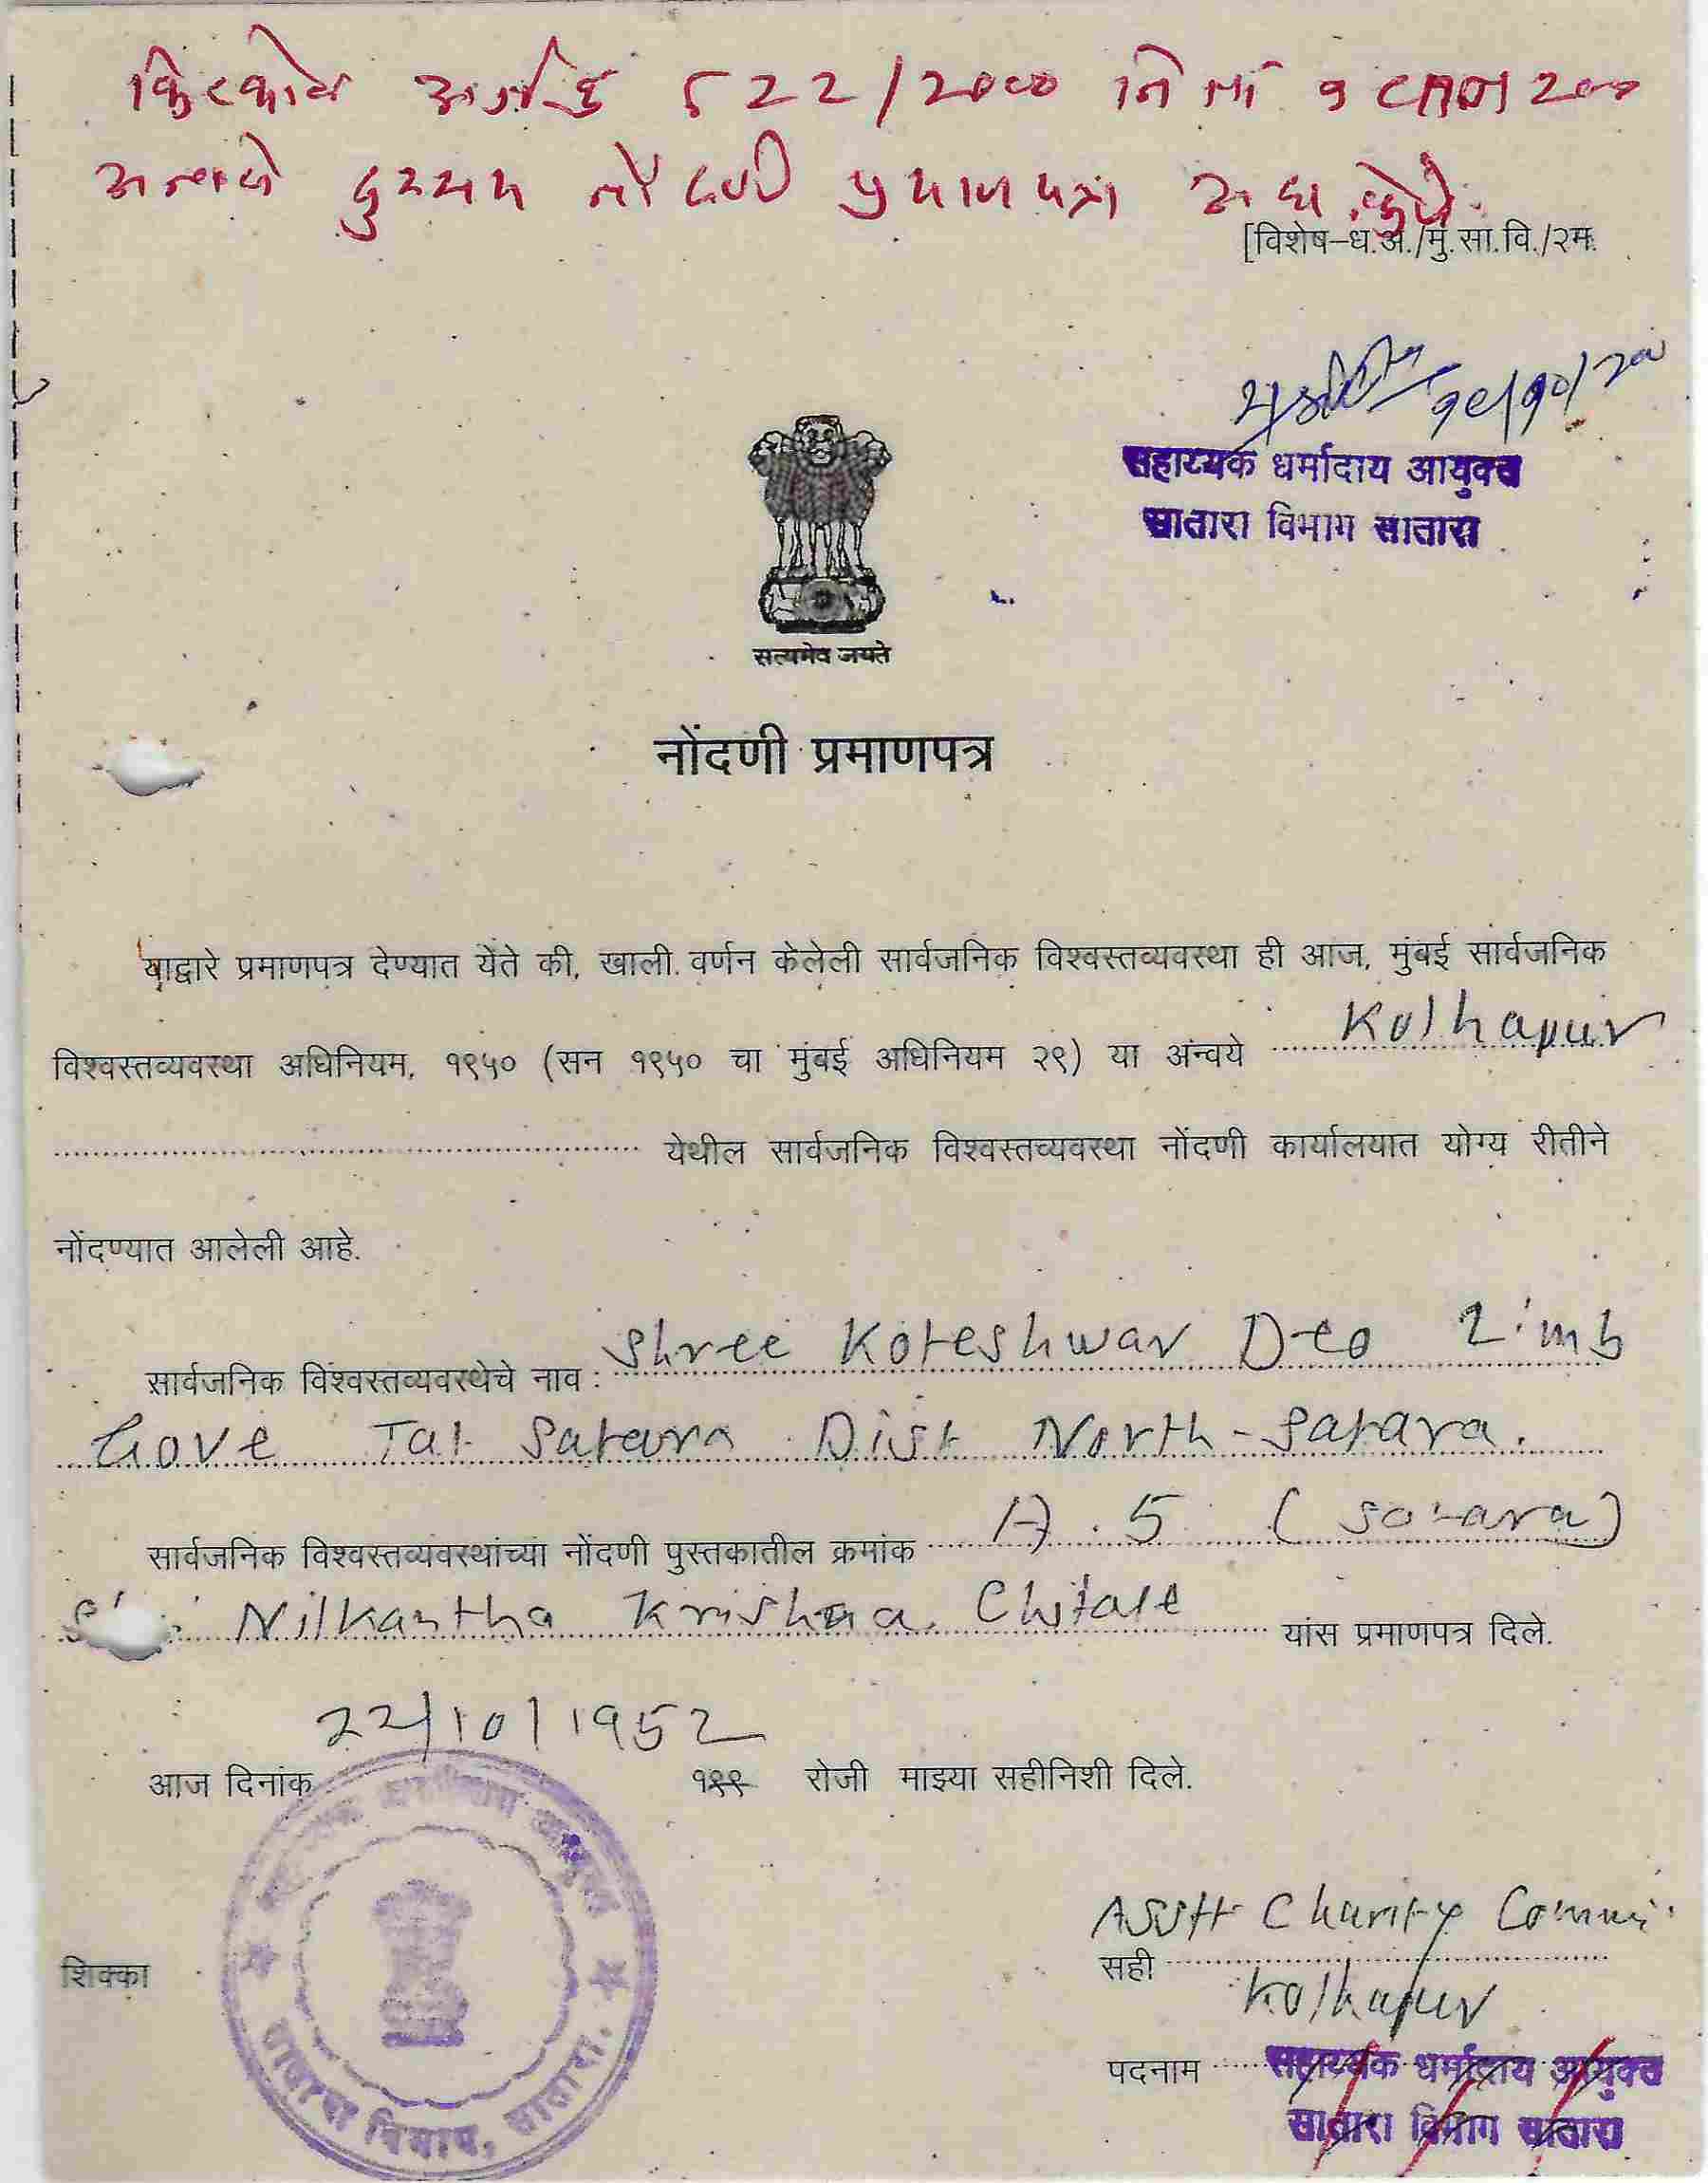 522/2000
दुय्यम नोंदणी प्रमाणपत्र
[विशेष–ध.अ./मु.सा.वि./२म.
सहाय्यक धर्मादाय आयुक्त
सातारा विभाग सातारा
सत्यमेव जयते
नोंदणी प्रमाणपत्र
याद्वारे प्रमाणपत्र देण्यात येते की, खाली वर्णन केलेली सार्वजनिक विश्वस्तव्यवस्था ही आज, मुंबई सार्वजनिक
विश्वस्तव्यवस्था अधिनियम, १९५० (सन १९५० चा मुंबई अधिनियम २९) या अंन्वये Kolhapur
येथील सार्वजनिक विश्वस्तव्यवस्था नोंदणी कार्यालयात योग्य रीतीने
नोंदण्यात आलेली आहे.
सार्वजनिक विश्वस्तव्यवस्थेचे नाव : Shree Koteshwar Deo Limb
Gove Tal Satara Dist North-Satara.
सार्वजनिक विश्वस्तव्यवस्थांच्या नोंदणी पुस्तकातील क्रमांक A. 5 (Satara)
Nilkantha Krishna Chitale यांस प्रमाणपत्र दिले.
22/10/1952
आज दिनांक १९९ रोजी माझ्या सहीनिशी दिले.
शिक्का
सातारा विभाग, सातारा.
Asstt Charity Commi
सही
Kolhapur
पदनाम सहाय्यक धर्मादाय आयुक्त
सातारा विभाग सातारा